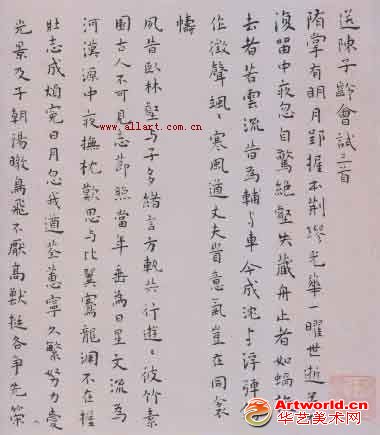 送陳子齡會試三首
隋掌有明月郢握不荆璆光華一曜世逝
復留中夜忽自驚絕壑失藏舟止者如蝸
去者若雲流昔為輔与車今成沈与浮彈
作徵聲颯〻寒風遒丈夫貴意氣豈在同裘
幬
夙昔臥林壑与子多緒言方軌共行遊〻彼竹素
園古人不可見志節照當年垂為日星文流為
河漢源中夜撫枕歎思与比翼騫龍淵不在握
壯志成煩冤日月忽我遒荃蕙寧久繁努力愛
光景及子朝陽暾鳥飛不厭高獸挺各爭先策
www.allart.com.cn
Artworld.cn
华艺美术网